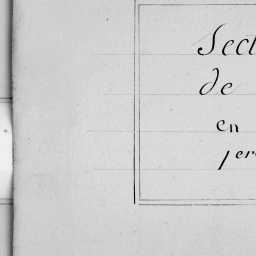 Sect
de
en
per